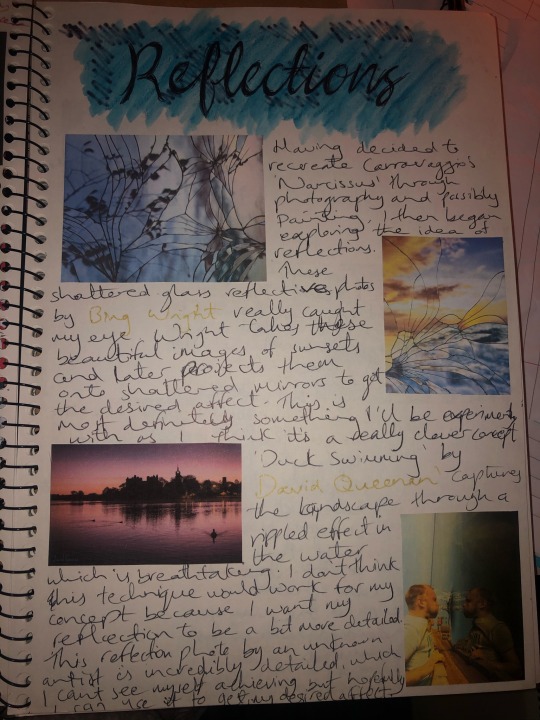 Reflections
Having decided to
recreate Carravaggio's
'Narcissus' through
photography and possibly
painting. I then began
exploring the idea of
reflections.
These
shattered glass reflectives photos
by Bing Wright really caught
my eye. Wright takes these
beautiful images of sunsets
and later projects them
onto shattered mirrors to get
the desired affect. This is
most definitely something I'll be experimenting
with as I think it's a really clever concept
'Duck Swimming' by
David Queenan captures
the landscape through a
rippled effect in
the water
which is breathtaking. I don't think
this technique would work for my
concept because I want my
reflection to be a bit more detailed.
This reflection photo by an unknown
artist is incredibly detailed which
I can't see myself achieving but hopefully
I can use it to get my desired affect.